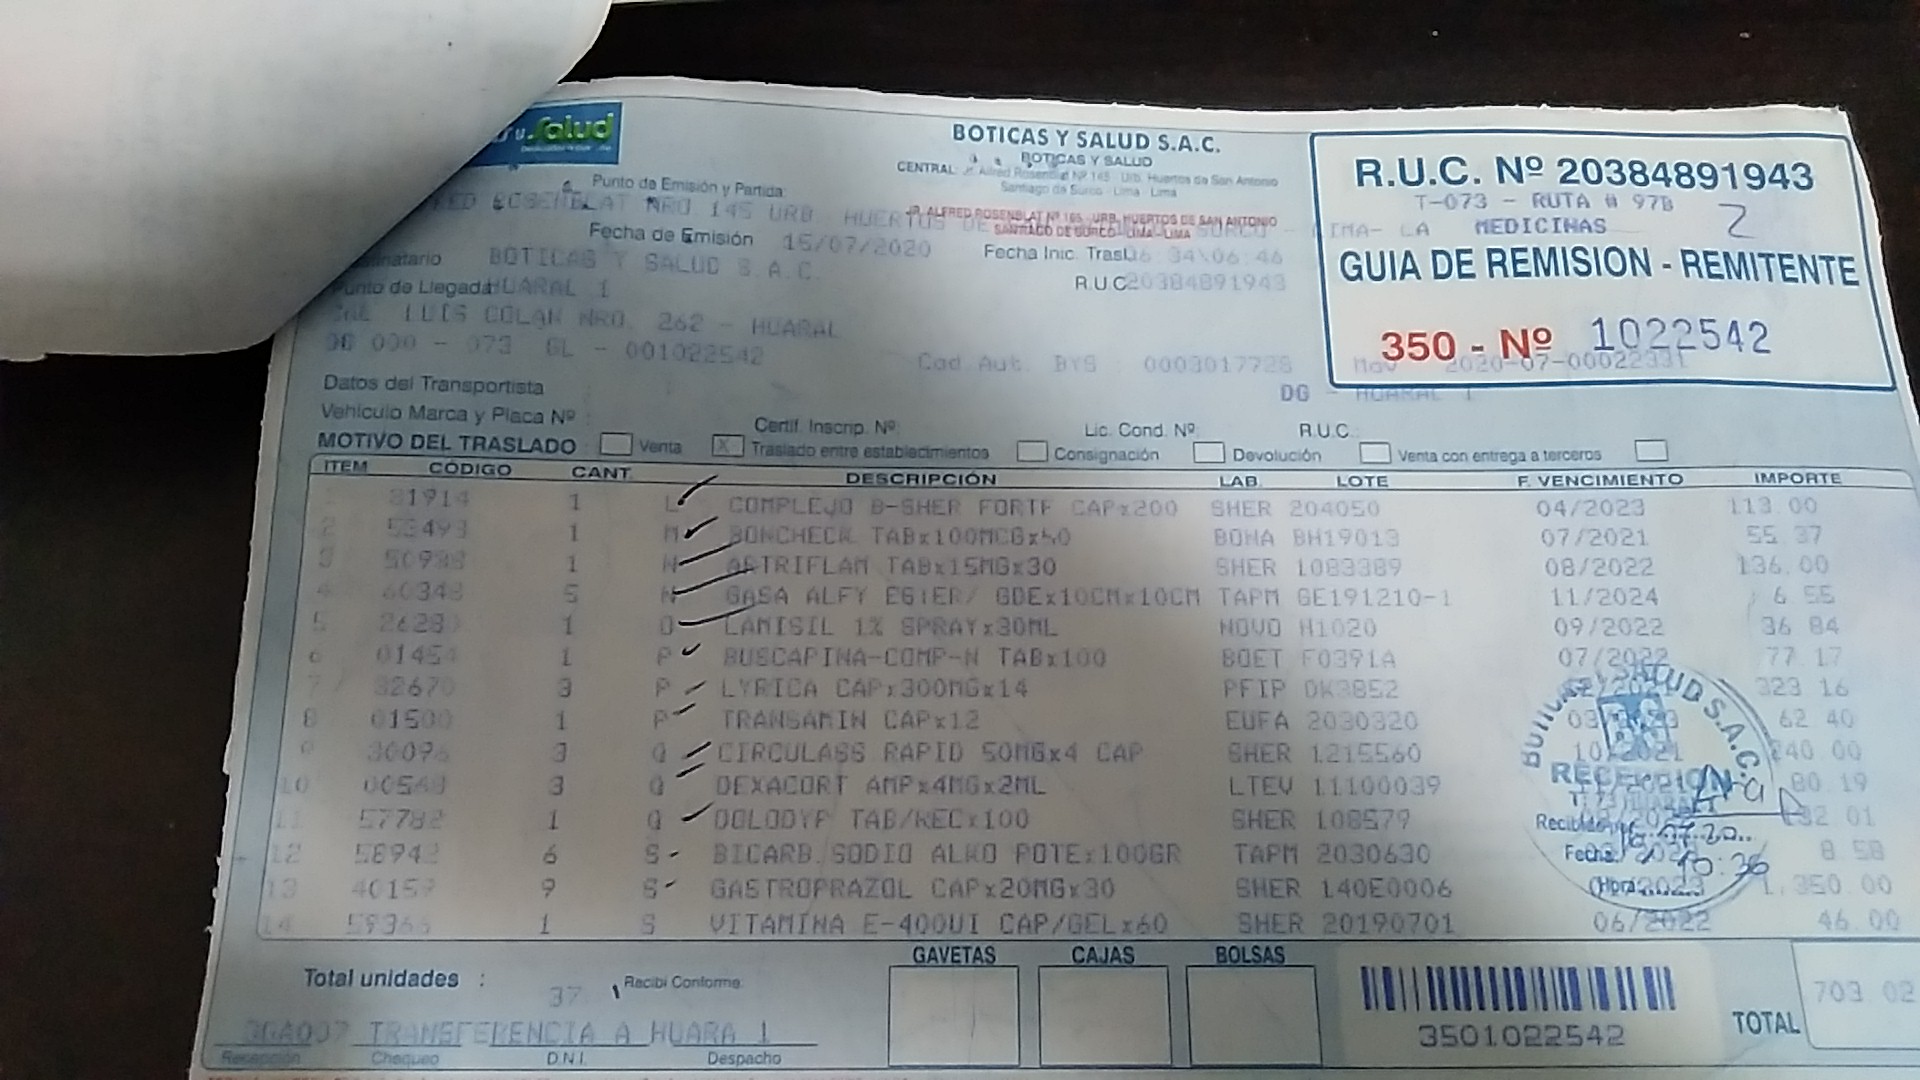 Salud
BOTICAS Y SALUD S.A.C.
BOTICAS Y SALUD
CENTRAL: Jr. Alfred Rosenblat Nº 145 Urb. Huertos de San Antonio
Santiago de Surco - Lima - Lima
R.U.C. Nº 20384891943
T-073 - RUTA # 97B
MEDICINAS 2
GUIA DE REMISION - REMITENTE
350 - Nº 1022542
Punto de Emisión y Partida:
ROSENBLAT NRO 145 URB. HUERTOS DE SURCO - LIMA- LA
JR. ALFRED ROSENBLAT Nº 165 - URB. HUERTOS DE SAN ANTONIO
SANTIAGO DE SURCO - LIMA - LIMA
Fecha de Emisión 15/07/2020 Fecha Inic. Trasl 34\06:46
BOTICAS Y SALUD S.A.C. R.U.C 20384891943
Punto de Llegada HUARAL 1
LUIS COLAN NRO. 262 - HUARAL
000 - 073 GL - 001022542 Cod Aut. BYS 0003017728 Mov 2020-07-00022331
DG - HUARAL 1
Datos del Transportista
Vehículo Marca y Placa Nº Certif. Inscrip. Nº Lic. Cond. Nº R.U.C.:
MOTIVO DEL TRASLADO Venta X Traslado entre establecimientos Consignación Devolución Venta con entrega a terceros
ITEM CÓDIGO CANT. DESCRIPCIÓN LAB. LOTE F. VENCIMIENTO IMPORTE
1 81914 1 L COMPLEJO B-SHER FORTE CAPx200 SHER 204050 04/2023 113.00
2 53493 1 M BONCHECK TABx100MCGx50 BOHA BH19013 07/2021 55.37
3 1 N ARTRIFLAM TABx15MGx30 SHER 1083389 08/2022 136.00
4 60348 5 N GASA ALFY ESTER/ GDEx10CMx10CM TAPM GE191210-1 11/2024 6.55
5 1 O LAMISIL 1% SPRAYx30ML NOVO H1020 09/2022 36.84
6 1 P BUSCAPINA-COMP-N TABx100 BOET F0391A 07/2022 77.17
7 32670 3 P LYRICA CAPx300MGx14 PFIP DK3852 323.16
8 01500 1 P TRANSAMIN CAPx12 EUFA 2030320 62.40
9 3 Q CIRCULASS RAPID 50MGx4 CAP SHER 1215560 10/2021 240.00
10 3 Q DEXACORT AMPx4MGx2ML LTEV 11100039 80.19
11 57782 1 Q DOLODYF TAB/RECx100 SHER 108579 132.01
12 58942 6 S BICARB.SODIO ALKO POTEx100GR TAPM 2030630 8.58
13 40159 9 S GASTROPRAZOL CAPx20MGx30 SHER 140E0006 1,350.00
14 1 S VITAMINA E-400UI CAP/GELx60 SHER 20190701 06/2022 46.00
SALUD S.A.C.
RECEPCION
T. 73 HUARAL 1
Recibido
Fecha
Hora 10:36
GAVETAS CAJAS BOLSAS
Total unidades : 37 Recibí Conforme:
TRANSFERENCIA A HUARA 1
Recepción Chequeo D.N.I. Despacho
3501022542
TOTAL 703 02